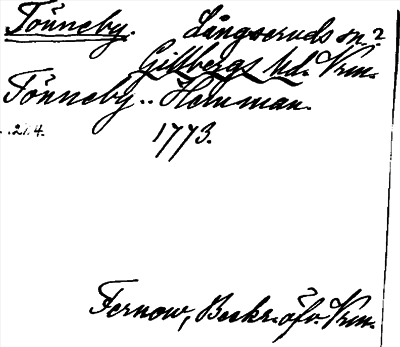 Tönneby. Långseruds sn?
Gillbergs hd. Vrm.
Tönneby.. Hemman.
. 214.
1773.
Fernow, Beskr. öfv. Vrm.